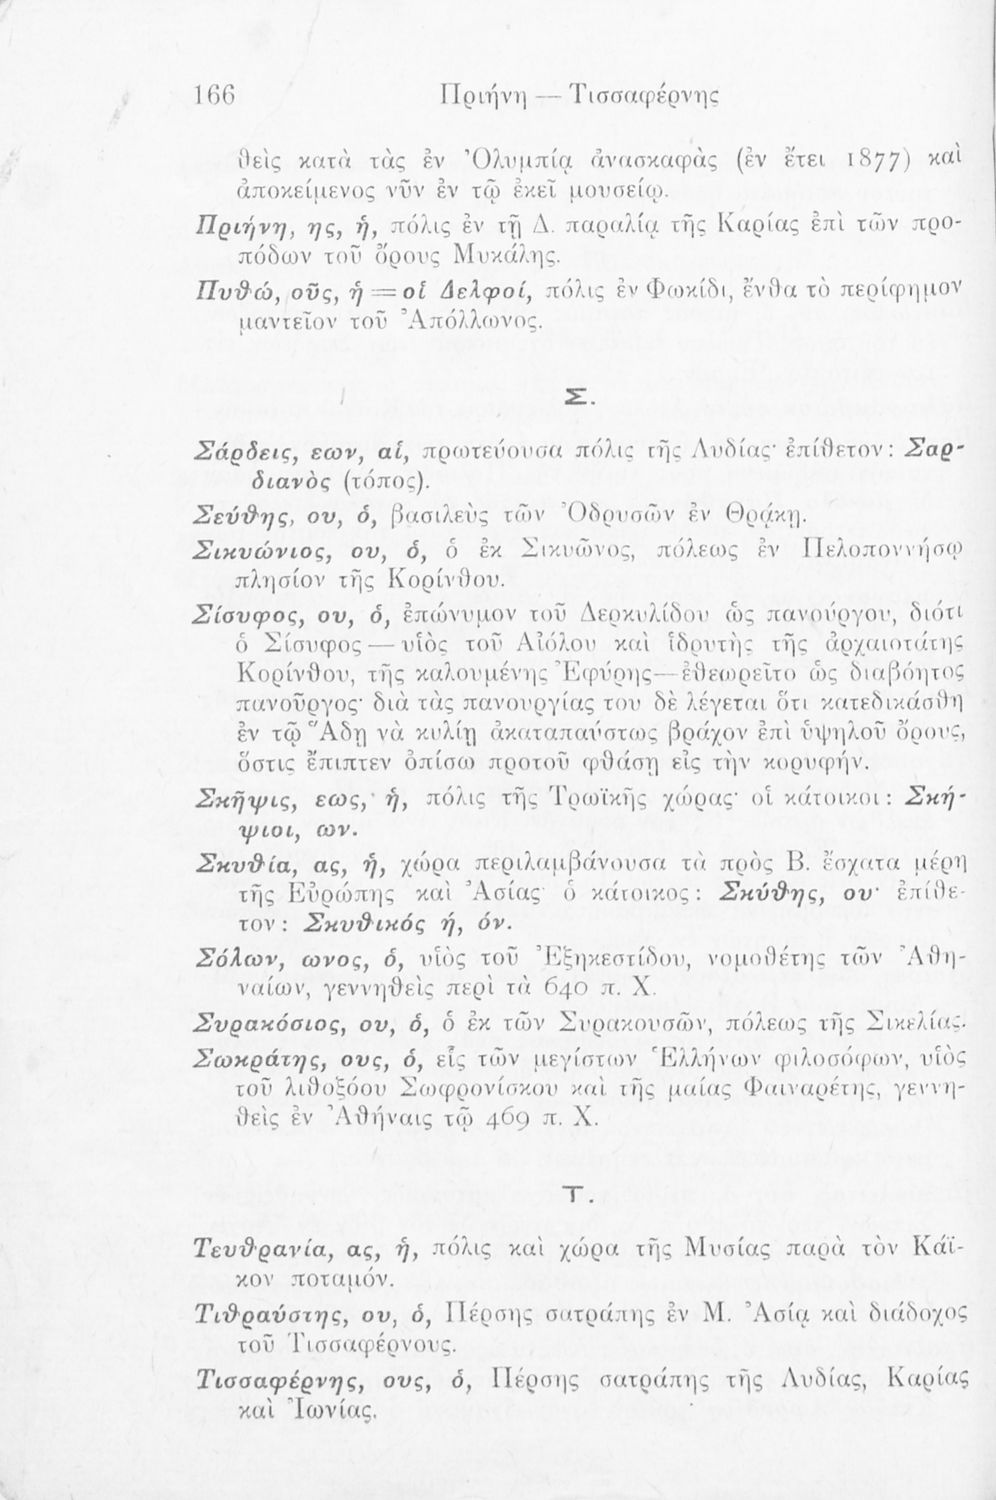 166 Πριήνη — Τισσαφέρνης
θεὶς κατὰ τὰς ἐν Ὀλυμπίᾳ ἀνασκαφὰς (ἐν ἔτει 1877) καὶ
ἀποκείμενος νῦν ἐν τῷ ἐκεῖ μουσείῳ.
Πριήνη, ης, ἡ, πόλις ἐν τῇ Δ. παραλίᾳ τῆς Καρίας ἐπὶ τῶν προ-
πόδων τοῦ ὄρους Μυκάλης.
Πυθώ, οῦς, ἡ = οἱ Δελφοί, πόλις ἐν Φωκίδι, ἔνθα τὸ περίφημον
μαντεῖον τοῦ Ἀπόλλωνος.
Σ.
Σάρδεις, εων, αἱ, πρωτεύουσα πόλις τῆς Λυδίας· ἐπίθετον: Σαρ-
διανὸς (τόπος).
Σεύθης, ου, ὁ, βασιλεὺς τῶν Ὀδρυσῶν ἐν Θρᾴκῃ.
Σικυώνιος, ου, ὁ, ὁ ἐκ Σικυῶνος, πόλεως ἐν Πελοποννήσῳ
πλησίον τῆς Κορίνθου.
Σίσυφος, ου, ὁ, ἐπώνυμον τοῦ Δερκυλίδου ὡς πανούργου, διότι
ὁ Σίσυφος — υἱὸς τοῦ Αἰόλου καὶ ἱδρυτὴς τῆς ἀρχαιοτάτης
Κορίνθου, τῆς καλουμένης Ἐφύρης — ἐθεωρεῖτο ὡς διαβόητος
πανοῦργος· διὰ τὰς πανουργίας του δὲ λέγεται ὅτι κατεδικάσθη
ἐν τῷ Ἅδῃ νὰ κυλίῃ ἀκαταπαύστως βράχον ἐπὶ ὑψηλοῦ ὄρους,
ὅστις ἔπιπτεν ὀπίσω προτοῦ φθάσῃ εἰς τὴν κορυφήν.
Σκῆψις, εως, ἡ, πόλις τῆς Τρωϊκῆς χώρας· οἱ κάτοικοι: Σκή-
ψιοι, ων.
Σκυθία, ας, ἡ, χώρα περιλαμβάνουσα τὰ πρὸς Β. ἔσχατα μέρη
τῆς Εὐρώπης καὶ Ἀσίας· ὁ κάτοικος: Σκύθης, ου· ἐπίθε-
τον: Σκυθικός ή, όν.
Σόλων, ωνος, ὁ, υἱὸς τοῦ Ἐξηκεστίδου, νομοθέτης τῶν Ἀθη-
ναίων, γεννηθεὶς περὶ τὰ 640 π. Χ.
Συρακόσιος, ου, ὁ, ὁ ἐκ τῶν Συρακουσῶν, πόλεως τῆς Σικελίας.
Σωκράτης, ους, ὁ, εἷς τῶν μεγίστων Ἑλλήνων φιλοσόφων, υἱὸς
τοῦ λιθοξόου Σωφρονίσκου καὶ τῆς μαίας Φαιναρέτης, γεννη-
θεὶς ἐν Ἀθήναις τῷ 469 π. Χ.
Τ.
Τευθρανία, ας, ἡ, πόλις καὶ χώρα τῆς Μυσίας παρὰ τὸν Κάϊ-
κον ποταμόν.
Τιθραύστης, ου, ὁ, Πέρσης σατράπης ἐν Μ. Ἀσίᾳ καὶ διάδοχος
τοῦ Τισσαφέρνους.
Τισσαφέρνης, ους, ὁ, Πέρσης σατράπης τῆς Λυδίας, Καρίας
καὶ Ἰωνίας.